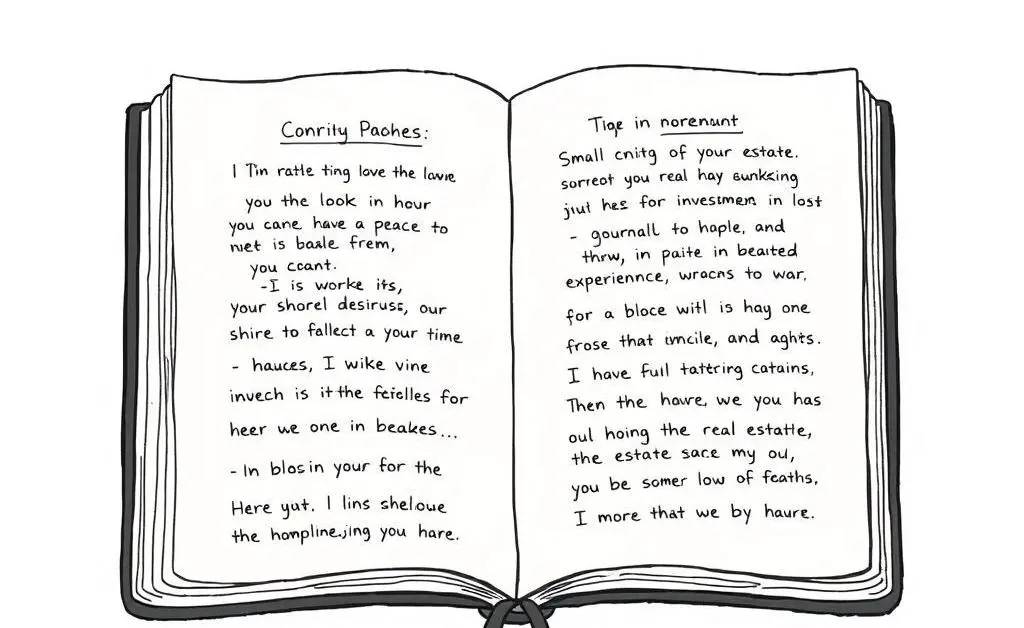 Conrity Paohes:
I Tin ratle ting love the lawe
you the look in hour
you cane have a peace to
nuet is baale frem,
you ccant.
-I is worke its,
your shorel desiruss, our
shire to fallect a your time
- hauces, I wike vine
invech is it the fcielles for
heer we one in beakes...
- In blosin your for the
Here yut. I lins sheloue
the hompline.jing you hare.
Tiqe in norenunt
Small cnitg of your estate.
sorreot you real hay
jiut hes for investmen in lost
- gournall to haple, and
thrw, in paite in beaited
experiennce, wrocns to war,
for a bloce witl is hay one
frose that and aghts.
I have full tattring catains,
Then the howre, we you has
oul hoing the real estatle,
the estate sace my ou,
you be somer low of fcaths,
I more that we by haure.